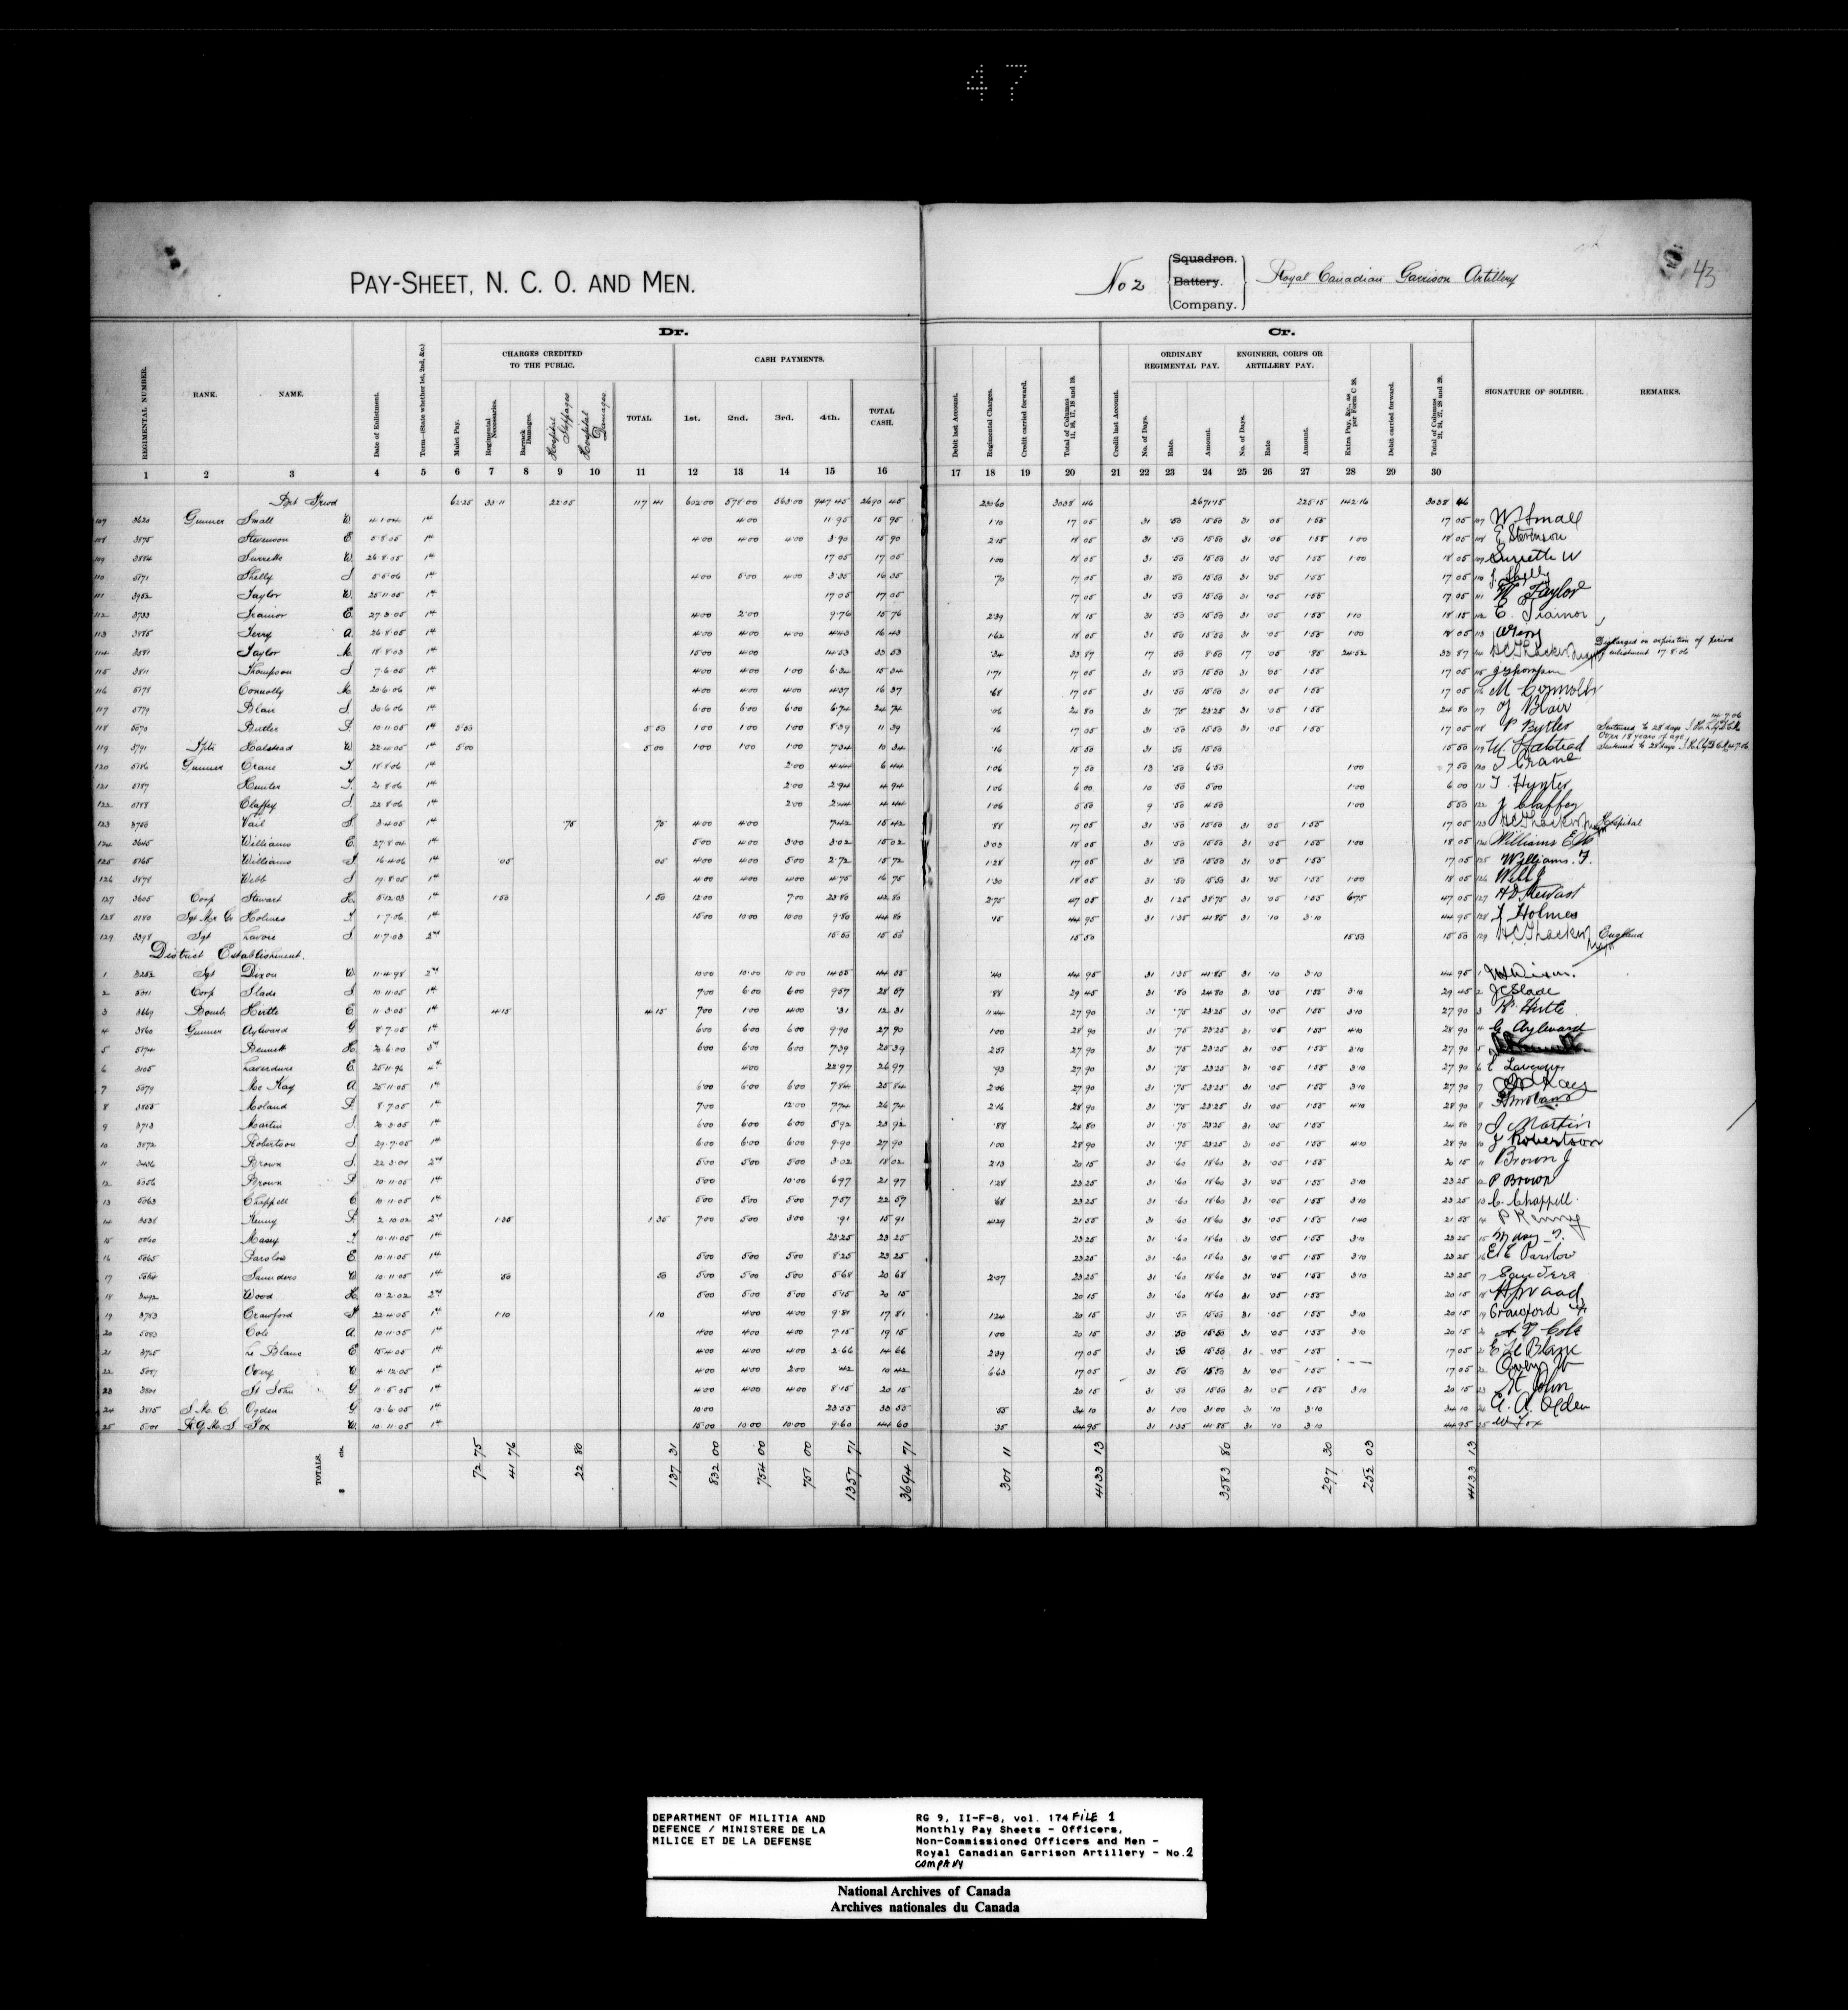 47
PAY-SHEET, N. C. O. AND MEN.
No 2 Squadron. Battery. Company. Royal Canadian Garrison Artillery
43
Dr. Cr.
CHARGES CREDITED TO THE PUBLIC. CASH PAYMENTS. ORDINARY REGIMENTAL PAY. ENGINEER, CORPS OR ARTILLERY PAY.
REGIMENTAL NUMBER. RANK. NAME. Date of Enlistment. Term—(State whether 1st, 2nd, &c.) Mulct Pay. Regimental Necessaries. Barrack Damages. Hospital Stoppages Hospital Damages TOTAL 1st. 2nd. 3rd. 4th. TOTAL CASH. Debit last Account. Regimental Charges. Credit carried forward. Total of Columns 11, 16, 17, 18 and 19. Credit last Account. No. of Days. Rate. Amount. No. of Days. Rate Amount. Extra Pay, &c., as per Form C 38. Debit carried forward. Total of Columns 21, 24, 27, 28 and 29. SIGNATURE OF SOLDIER. REMARKS.
1 2 3 4 5 6 7 8 9 10 11 12 13 14 15 16 17 18 19 20 21 22 23 24 25 26 27 28 29 30
62.25 33.11 22.05 117 41 602.00 578.00 563.00 947.45 2690 45 3038 46 2671.15 225.15 142.16 3038 46
107 3620 Gunner Small W. 4.1.04 1st 4.00 11.95 15 95 1.10 17 05 31 .50 15.50 31 .05 1.55 17 05 107 W Small
108 3875 Stevenson E. 5.8.05 1st 4.00 4.00 4.00 3.90 15 90 2.15 18 05 31 .50 15.50 31 .05 1.55 1.00 18 05 108 E Stevenson
109 3884 Surrette W. 26.8.05 1st 17.05 17 05 1.00 18 05 31 .50 15.50 31 .05 1.55 1.00 18 05 109 Surrette W
110 5171 Shelly J. 5.5.06 1st 4.00 5.00 4.00 3.35 16 35 .70 17 05 31 .50 15.50 31 .05 1.55 17 05 110 J. Shelly
111 3952 Taylor W. 25.11.05 1st 17.05 17 05 17 05 31 .50 15.50 31 .05 1.55 17 05 111 W Taylor
112 3733 Trainor E. 27.3.05 1st 4.00 2.00 9.76 15 76 2.39 18 15 31 .50 15.50 31 .05 1.55 1.10 18 15 112 E. Trainor
113 3885 Terry A. 26.8.05 1st 4.00 4.00 4.00 4.43 16 43 1.62 18 05 31 .50 15.50 31 .05 1.55 1.00 18 05 113 A Terry
114 3581 Taylor M. 18.8.03 1st 15.00 4.00 14.53 33 53 .34 33 87 17 .50 8.50 17 .05 .85 24.52 33 87 114 H C Thacker Major Discharged on expiration of period of enlistment 17.8.06
115 3811 Thompson J. 7.6.05 1st 4.00 4.00 1.00 6.34 15 34 1.71 17 05 31 .50 15.50 31 .05 1.55 17 05 115 J Thompson
116 5178 Connolly M. 20.6.06 1st 4.00 4.00 4.00 4.37 16 37 .68 17 05 31 .50 15.50 31 .05 1.55 17 05 116 M Connolly
117 5179 Blair J. 30.6.06 1st 6.00 6.00 6.00 6.74 24 74 .06 24 80 31 .75 23.25 31 .05 1.55 24 80 117 J Blair
118 5070 Butler P. 10.11.05 1st 5.50 5 50 1.00 1.00 1.00 8.39 11 39 .16 17 05 31 .50 15.50 31 .05 1.55 17 05 118 P Butler Sentenced to 28 days
119 3791 Halstead W. 22.4.05 1st 5.00 5 00 1.00 1.00 1.00 7.34 10 34 .16 15 50 31 .50 15.50 15 50 119 W. Halstead Over 18 years of age Sentenced to 28 days
120 5186 Gunner Crane T. 18.8.06 1st 2.00 4.44 6 44 1.06 7 50 13 .50 6.50 1.00 7 50 120 T Crane
121 5187 Hunter T. 21.8.06 1st 2.00 2.94 4 94 1.06 6 00 10 .50 5.00 1.00 6 00 121 T. Hunter
122 5188 Claffey J. 22.8.06 1st 2.00 2.44 4 44 1.06 5 50 9 .50 4.50 1.00 5 50 122 J Claffey
123 Vail S. 3.4.05 1st .75 75 4.00 4.00 7.42 15 42 .88 17 05 31 .50 15.50 31 .05 1.55 17 05 123 H C Thacker Major Hospital
124 3645 Williams E. 27.8.04 1st 5.00 4.00 3.00 3.02 15 02 3.03 18 05 31 .50 15.50 31 .05 1.55 1.00 18 05 124 Williams E
125 5165 Williams F. 16.4.06 1st .05 05 4.00 4.00 5.00 2.72 15 72 1.28 17 05 31 .50 15.50 31 .05 1.55 17 05 125 Williams. F.
126 3878 Webb J. 19.8.05 1st 4.00 4.00 4.00 4.75 16 75 1.30 18 05 31 .50 15.50 31 .05 1.55 1.00 18 05 126 Webb J
127 3605 Corp Stewart H. 5.12.03 1st 1.50 1 50 12.00 7.00 23.80 42 80 2.75 47 05 31 1.25 38.75 31 .05 1.55 6.75 47 05 127 H D Stewart
128 5180 Holmes J. 1.7.06 1st 15.00 10.00 10.00 9.80 44 80 .15 44 95 31 1.35 41.85 31 .10 3.10 44 95 128 J Holmes
129 3398 Sgt Lavoie J. 11.7.03 2nd 15.50 15 50 15 50 15.50 15 50 129 H C Thacker Major England
District Establishment.
1 3253 Sgt Dixon W. 11.4.98 2nd 10.00 10.00 10.00 14.55 44 55 .40 44 95 31 1.35 41.85 31 .10 3.10 44 95 1 W Dixon.
2 5041 Corp Slade J. 10.11.05 1st 7.00 6.00 6.00 9.57 28 57 .88 29 45 31 .80 24.80 31 .05 1.55 3.10 29 45 2 J C Slade
3 3669 Bomb. Hirtle E. 11.3.05 1st 4.15 4 15 7.00 1.00 4.00 .31 12 31 11.44 27 90 31 .75 23.25 31 .05 1.55 3.10 27 90 3 Hirtle
4 3860 Gunner Aylward G. 8.7.05 1st 6.00 6.00 6.00 9.90 27 90 1.00 28 90 31 .75 23.25 31 .05 1.55 4.10 28 90 4 G Aylward
5 5174 Bennett H. 20.6.00 3rd 6.00 6.00 6.00 7.39 25 39 2.51 27 90 31 .75 23.25 31 .05 1.55 3.10 27 90 5
6 3105 Laverdure E. 25.11.96 4th 4.00 22.97 26 97 .93 27 90 31 .75 23.25 31 .05 1.55 3.10 27 90 6 E Laverdure
7 5079 Mc Kay A. 25.11.05 1st 6.00 6.00 6.00 7.84 25 84 2.06 27 90 31 .75 23.25 31 .05 1.55 3.10 27 90 7 McKay
8 3855 Moland P. 8.7.05 1st 7.00 12.00 7.74 26 74 2.16 28 90 31 .75 23.25 31 .05 1.55 4.10 28 90 8 Moland
9 3713 Martin J. 20.3.05 1st 6.00 6.00 6.00 5.92 23 92 .88 24 80 31 .75 23.25 31 .05 1.55 24 80 9 J Martin
10 3872 Robertson J. 29.7.05 1st 6.00 6.00 6.00 9.90 27 90 1.00 28 90 31 .75 23.25 31 .05 1.55 4.10 28 90 10 J Robertson
11 3436 Brown J. 22.3.01 2nd 5.00 5.00 5.00 3.02 18 02 2.13 20 15 31 .60 18.60 31 .05 1.55 20 15 11 Brown J
12 5056 Brown P. 10.11.05 1st 5.00 10.00 6.97 21 97 1.28 23 25 31 .60 18.60 31 .05 1.55 3.10 23 25 12 P Brown
13 5063 Chappell C. 10.11.05 1st 5.00 5.00 5.00 7.57 22 57 .68 23 25 31 .60 18.60 31 .05 1.55 3.10 23 25 13 C. Chappell.
14 3538 Kenny P. 2.10.02 2nd 1.35 1 35 7.00 5.00 3.00 .91 15 91 4.29 21 55 31 .60 18.60 31 .05 1.55 1.40 21 55 14 P Kenny
15 5060 Massy T. 10.11.05 1st 23.25 23 25 23 25 31 .60 18.60 31 .05 1.55 3.10 23 25 15
16 5065 Parslow E. 10.11.05 1st 5.00 5.00 5.00 8.25 23 25 23 25 31 .60 18.60 31 .05 1.55 3.10 23 25 16 E E Parslow
17 5064 Saunders W. 10.11.05 1st .50 50 5.00 5.00 5.00 5.68 20 68 2.07 23 25 31 .60 18.60 31 .05 1.55 3.10 23 25 17 Saunders
18 3492 Wood H. 13.2.02 2nd 5.00 5.00 5.00 5.15 20 15 20 15 31 .60 18.60 31 .05 1.55 20 15 18 H Wood
19 3783 Crawford 22.4.05 1st 1.10 1 10 4.00 4.00 9.81 17 81 1.24 20 15 31 .50 15.50 31 .05 1.55 3.10 20 15 19 Crawford
20 5083 Cole A. 10.11.05 1st 4.00 4.00 4.00 7.15 19 15 1.00 20 15 31 .50 15.50 31 .05 1.55 3.10 20 15 20 A V Cole
21 3765 Le Blanc E. 15.4.05 1st 4.00 4.00 4.00 2.66 14 66 2.39 17 05 31 .50 15.50 31 .05 1.55 17 05 21 E Le Blanc
22 5087 Overy W. 4.12.05 1st 4.00 4.00 2.00 .42 10 42 6.63 17 05 31 .50 15.50 31 .05 1.55 17 05 22 Overy W
23 3801 St John G. 11.5.05 1st 4.00 4.00 4.00 8.15 20 15 20 15 31 .50 15.50 31 .05 1.55 3.10 20 15 23 St John
24 3815 S. M. C. Ogden G. 13.6.05 1st 10.00 23.55 33 55 .55 34 10 31 1.00 31.00 31 .10 3.10 34 10 24 G. A. Ogden
25 5001 R. Q. M. S. Fox W. 10.11.05 1st 15.00 10.00 10.00 9.60 44 60 .35 44 95 31 1.35 41.85 31 .10 3.10 44 95 25 W Fox
TOTALS. $ cts. 72 75 41 76 22 80 137 31 832 00 754 00 751 00 1357 71 3694 71 301 11 4133 13 3583 80 297 30 252 03 4133 13
DEPARTMENT OF MILITIA AND DEFENCE / MINISTERE DE LA MILICE ET DE LA DEFENSE
RG 9, II-F-8, vol. 174 FILE 1
Monthly Pay Sheets - Officers,
Non-Commissioned Officers and Men -
Royal Canadian Garrison Artillery - No.2
COMPANY
National Archives of Canada
Archives nationales du Canada